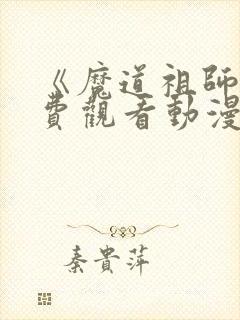 《魔道祖師
費觀看動漫
秦貴萍